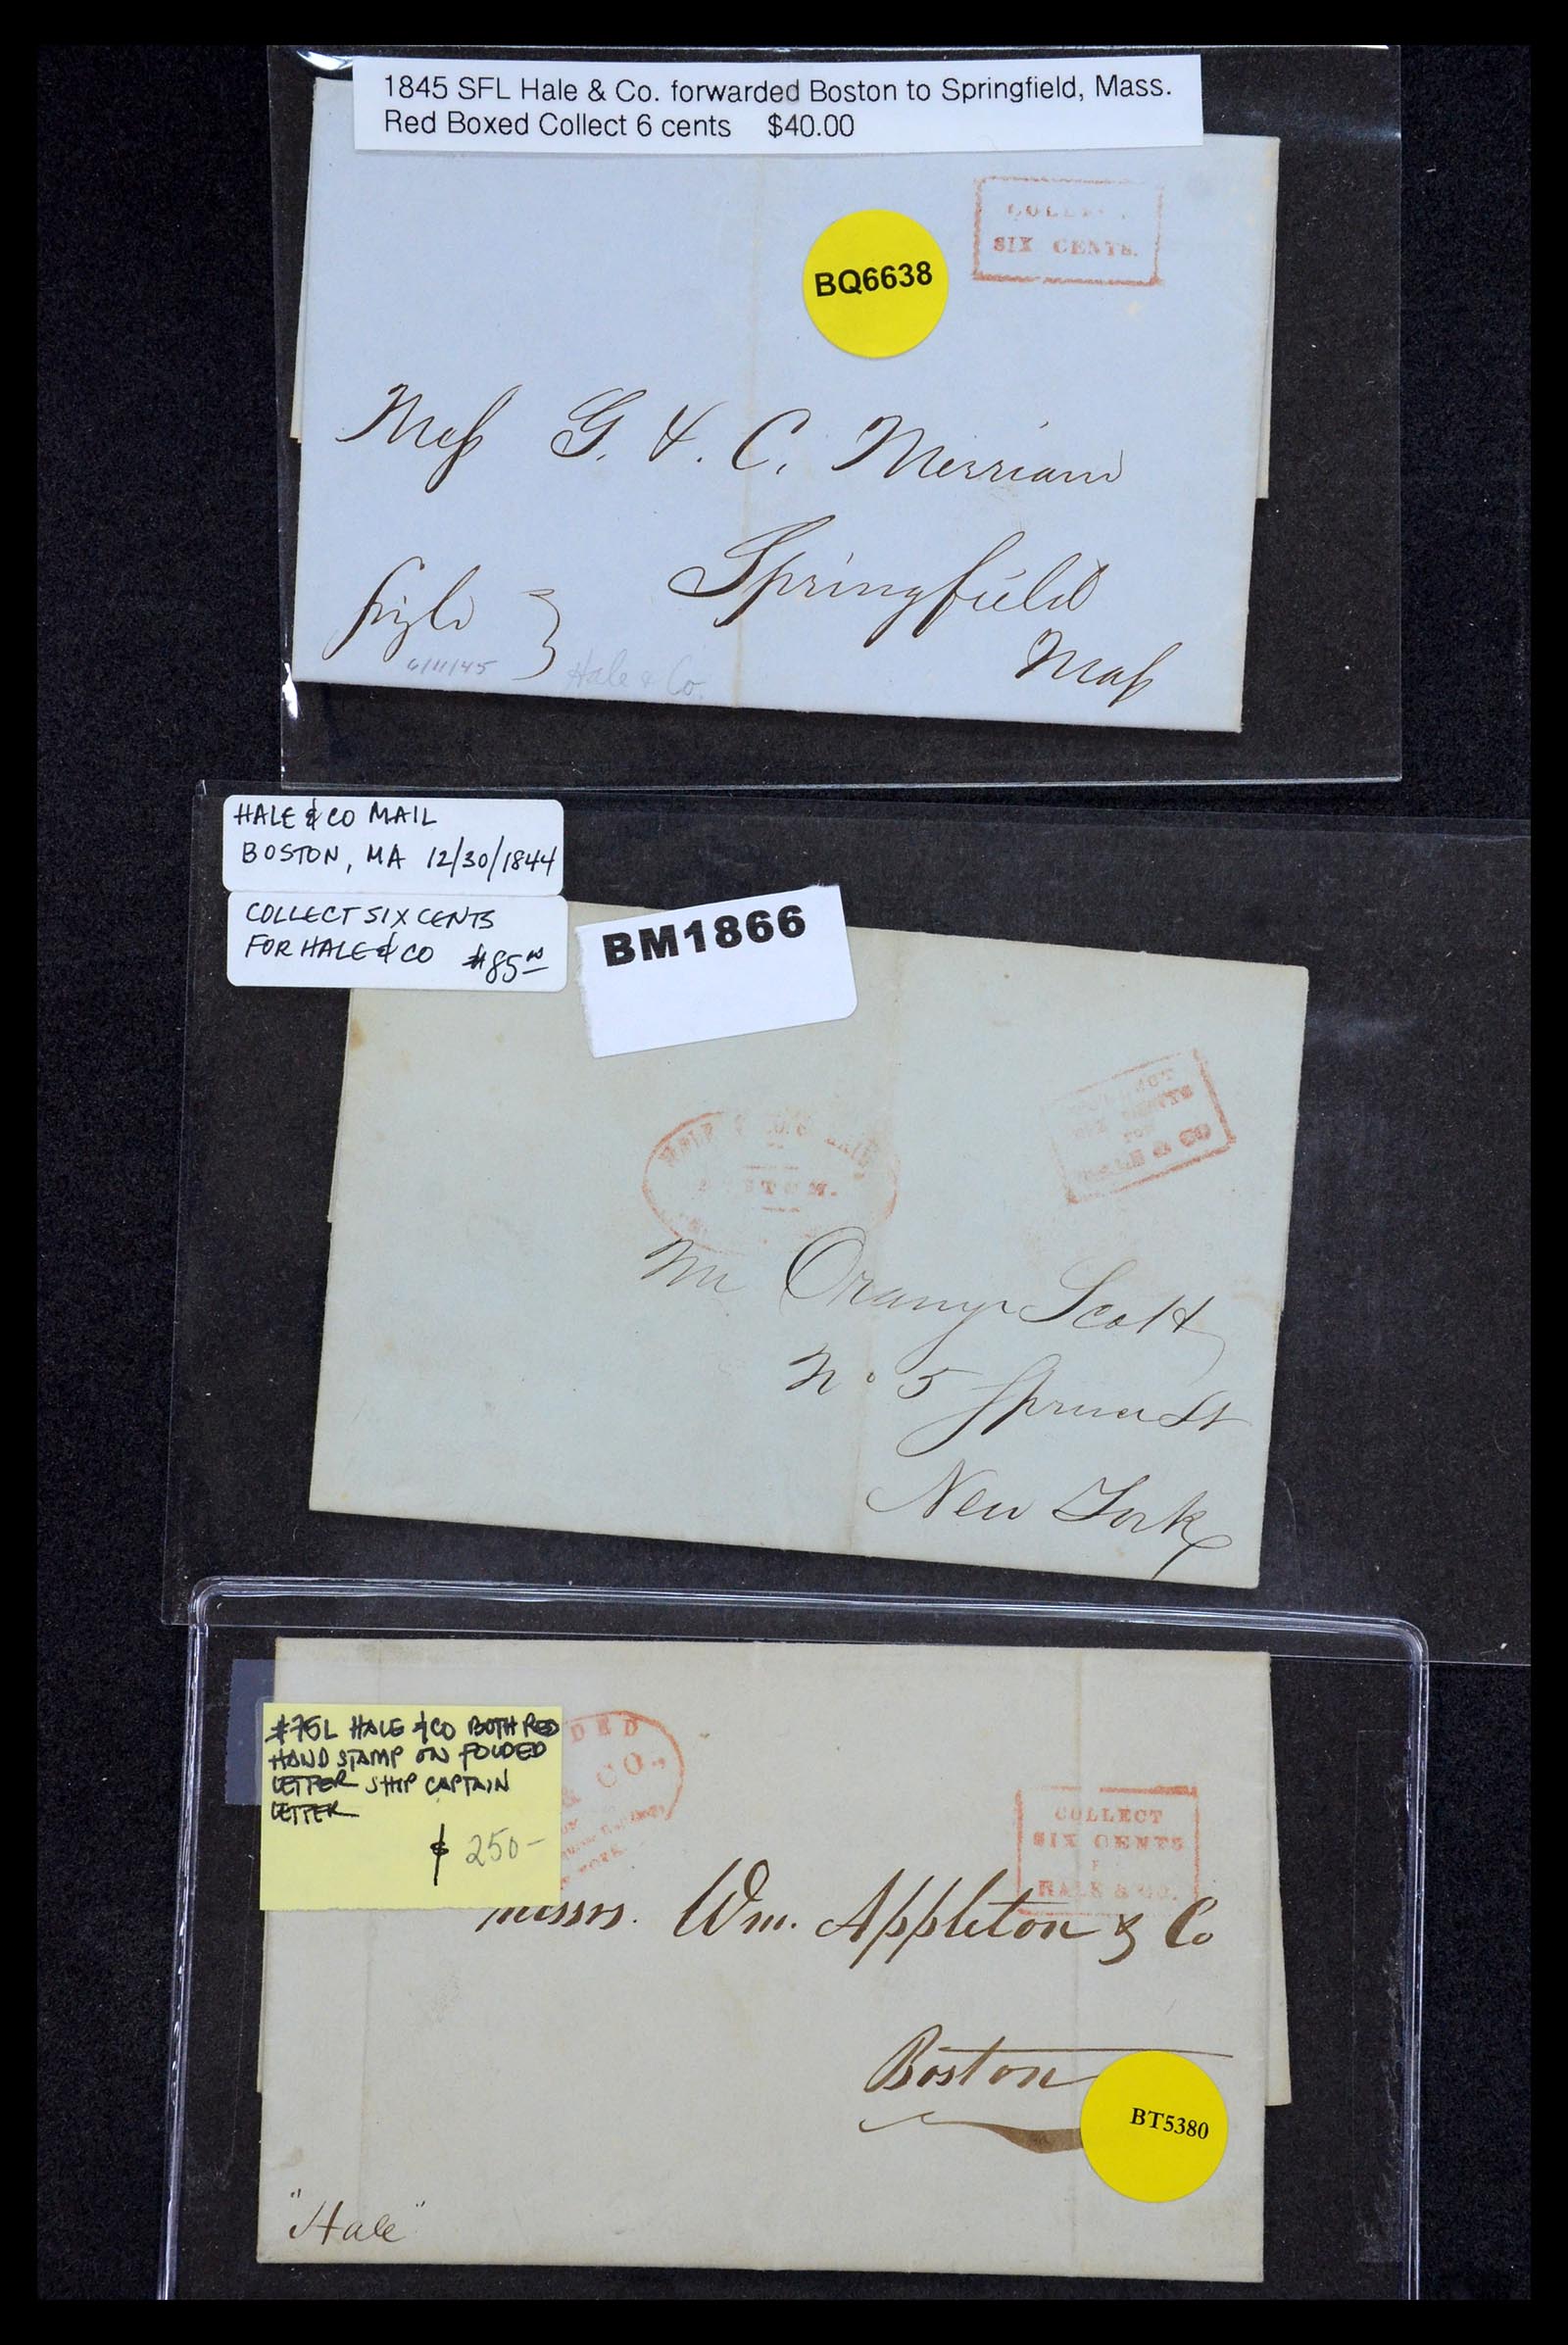 1845 SFL Hale & Co. forwarded Boston to Springfield, Mass.
Red Boxed Collect 6 cents $40.00
COLLECT
SIX CENTS.
BQ6638
Mess G. & C. Merriam
Springfield
Mass
6/11/45
Hale & Co.
HALE & CO MAIL
BOSTON, MA 12/30/1844
COLLECT SIX CENTS
FOR HALE & CO $85.00
BM1866
FOR
HALE & CO
BOSTON.
Mr Orange Scott
No 5 Spruce St
New York
#75L HALE & CO BOTH RED
HAND STAMP ON FOLDED
LETTER SHIP CAPTAIN
LETTER
$ 250-
DED
& CO.,
YORK.
COLLECT
SIX CENTS
F
HALE & CO.
Messrs. Wm. Appleton & Co
Boston
BT5380
"Hale"